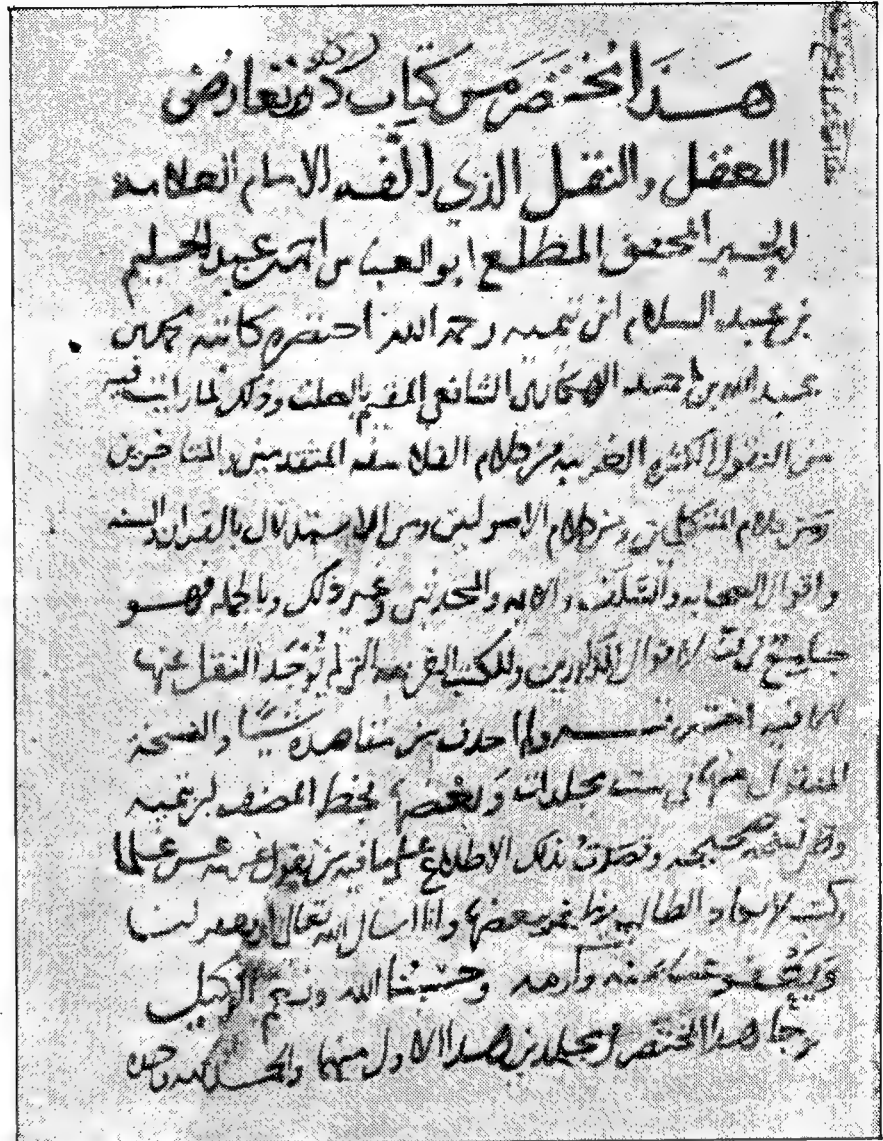 هذا مختصر من كتاب درء تعارض
العقل والنقل الذي الفه الامام العلامة
الحبر المحقق المطلع ابو العباس احمد بن عبد الحليم
بن عبد السلام ابن تيميه رحمه الله اختصره كاتبه محمد بن
عبد الله بن احمد الهكاري الشافعي المقيم بالصلت وذلك لما رايت فيه
من النقول الكثيره الغريبه من كلام الفلاسفه المتقدمين والمتاخرين
ومن كلام المتكلمين ومن كلام الاصوليين ومن الاستدلال بالقران والسنه
واقوال الصحابه والسلف والايمه والمحدثين وغير ذلك وبالجمله فهو
جامع لاقوال المذكورين وللكتب الغريبه التي لم يوجد النقل عنها
الا فيه ولم احذف من مقاصده شيئا والنسخة
المنقول منها في ست مجلدات وبعضها بخط المصنف ابن تيميه
وهي نسخه صحيحه وقصدت بذلك الاطلاع على ما فيه من نقول غريبه
الطالب يظفر ببعضها وانا اسال الله تعالى ان يغفر لنا
ويعفو عنا بمنه وكرمه وحسبنا الله ونعم الوكيل
وجا هذا المختصر في مجلدين هذا الاول منهما والحمد لله وحده